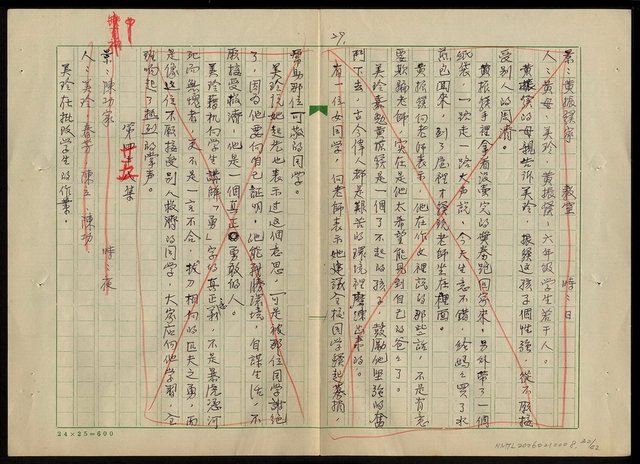 29.
景：黃振銻家　教室　時：日
人：黃母、美玲、黃振銻、六年級學生若干人。
黃振銻的母親告訴美玲，振銻這孩子個性強，從不願接
受別人的周濟。
黃振銻手裡拿着沒賣完的獎券跑回家來，另外帶了一個
紙袋，一路走一路大聲說，今天生意不錯，給媽々買了水
煎包回來，到了屋裡才發現老師坐在裡面。
黃振銻向老師表示，他在作文裡說的那些話，不是有意
要欺騙老師，實在是他太希望能見到自己的爸々了。
美玲嘉勉黃振銻是一個了不起的孩子，鼓勵他堅強的奮
鬥下去，古今偉人都是艱苦的環境裡磨鍊出來的。
有一位女同學，向老師表示她建議全校同學發起募捐，
幫助那位可敬的同學。
美玲說她起先也表示过這個意思，可是被那位同學謝絕
了，因為他要向自己証明，他能戰勝環境，自謀生活，不
願接受救濟，他是一個真正勇敢的人。
美玲藉机向學生講解「勇」字的真正意義，不是暴虎馮河
死而無悔者，更不是一言不合，拔刀相向的匹夫之勇，而
是像這位不願接受別人救濟的同學，大家應向他學習，全
班响起了熱烈的掌聲。
第十五集
景：陳功家　時：夜
人：美玲、春芳、陳立、陳功
美玲在批改學生的作業。
24×25=600
NMTL20060210008